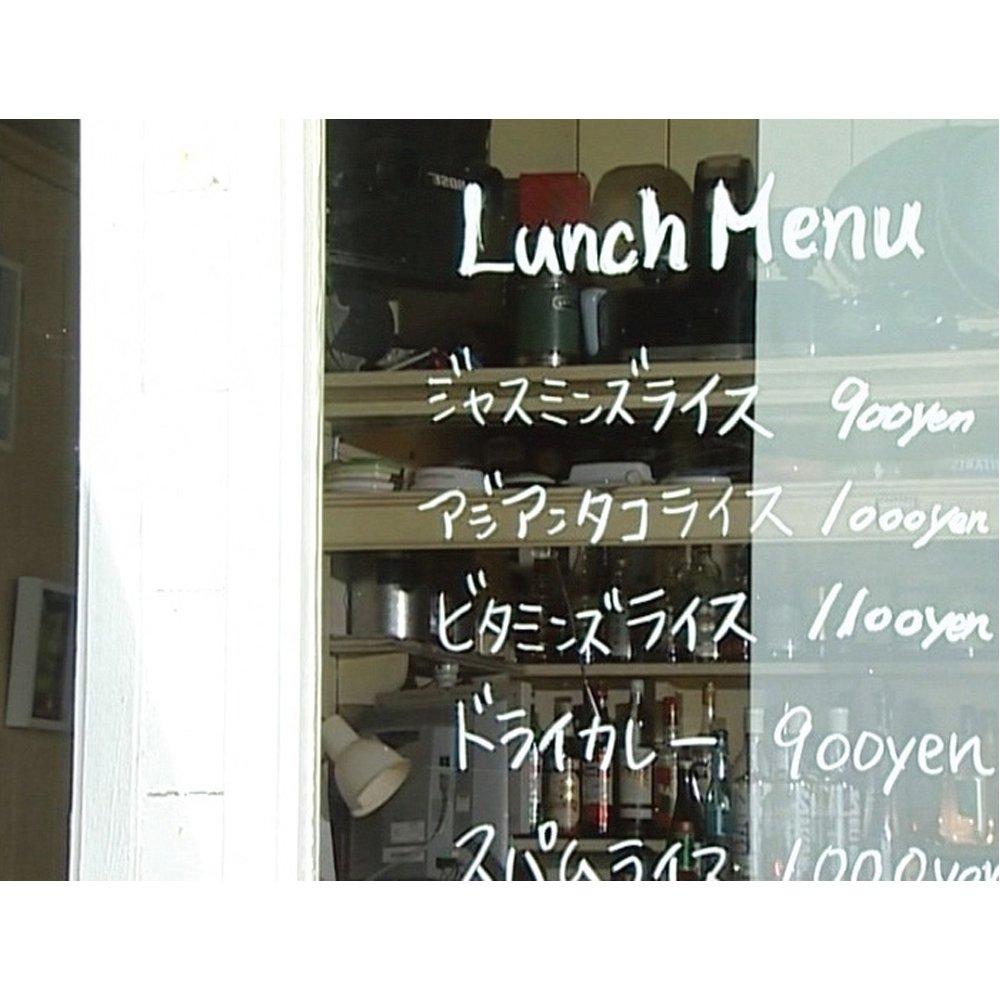 Lunch Menu
ジャスミンズライス 900yen
アジアンタコライス 1000yen
ビタミンズライス 1100yen
ドライカレー 900yen
スパムライス 1000yen